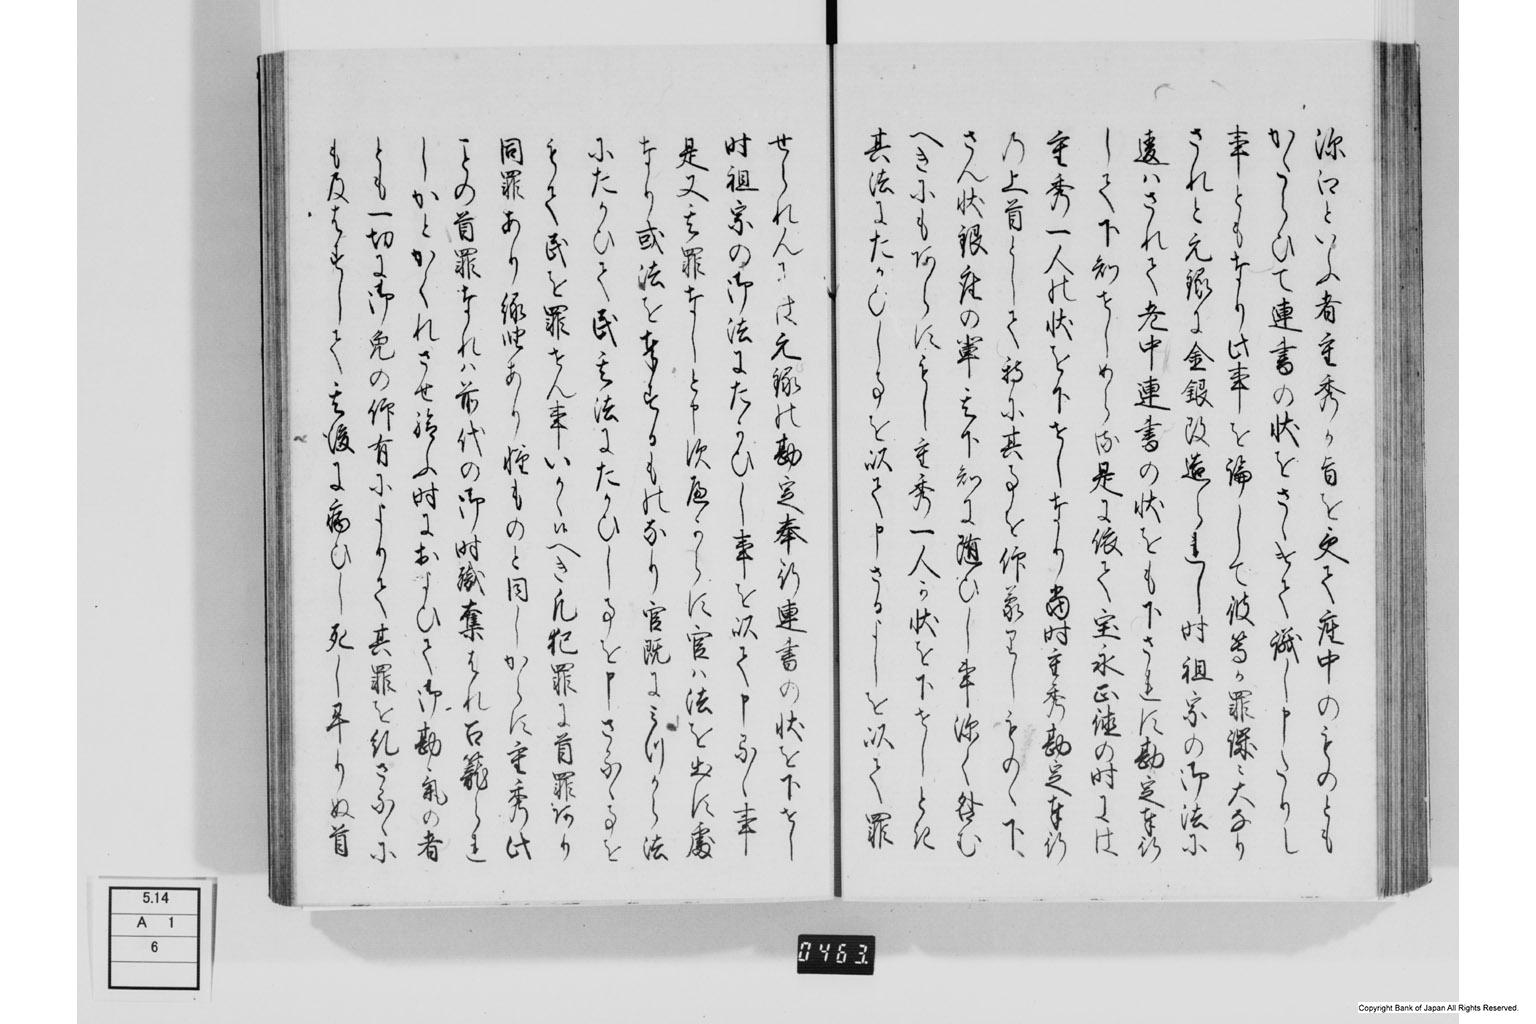 深江といふ者重秀か旨を受て座中のものとも
かたらひて連書の状をさゝけて議し申たりし
事ともなり此事を論して彼等か罪深く大なり
されと元禄に金銀改造られし時祖宗の御法に
違ハされて老中連書の状をも下されに勘定奉行
して下知せしめらる是に依て宝永正徳の時には
重秀一人の状を下せしなり当時重秀勘定奉行
の上首として特に其事を仰蒙りしものゝ下
さん状銀座の輩其下知に随ひし事深く咎む
へきにもあらにもし重秀一人か状を下せしとて
其法にたかひし事を以て申さるよしを以て罪
せられんには元禄の勘定奉行連書の状を下せし
時祖宗の御法にたかひし事を以て申ふし事
是又其罪なしと申次へからに官ハ法を出に處
なり或法を奉するものなり官既にみつから法
にたかひて民其法にたかひし事を申さふる事を
もて民を罪せん事いかゝ候へき凡犯罪に首罪あり
同罪あり縁坐あり軽ものと同しからに重秀此
ことの首罪なれハ前代の御時職奪はれ召籠られ
しかとかくれさせ給ふ時におよひて御勘気の者
とも一切に御免の仰有によりて其罪を糺さるゝに
も及はすして其後に病ひし死し畢りぬ首
5.14
A 1
6
0463
Copyright Bank of Japan All Rights Reserved.